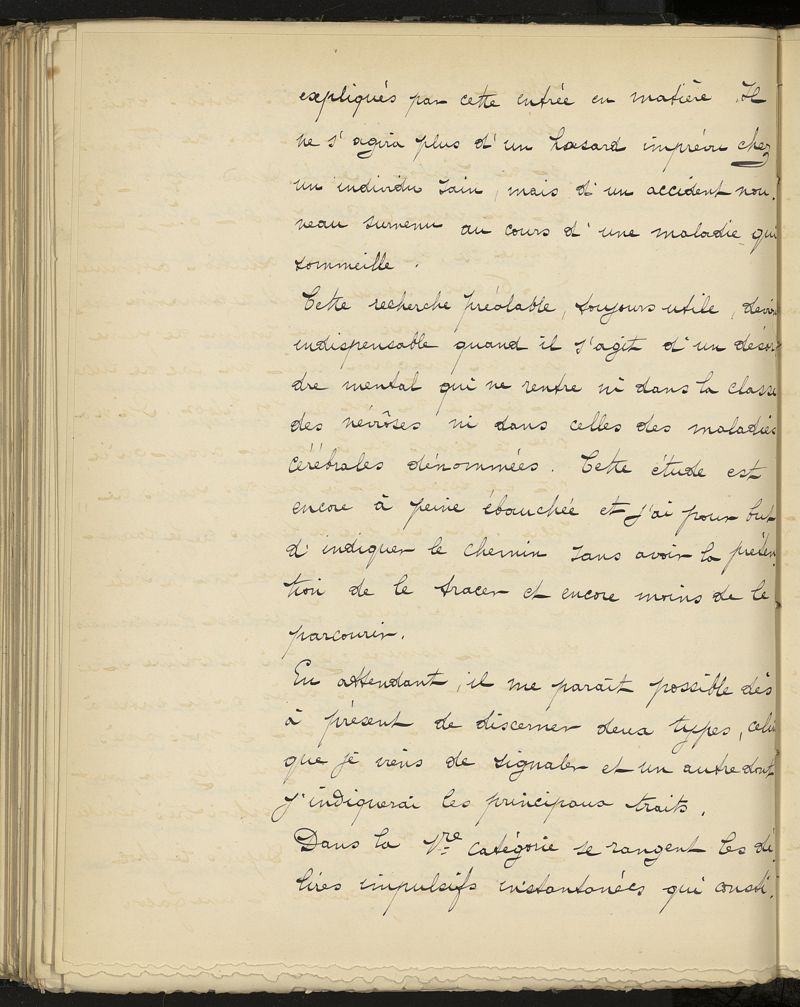 expliqués par cette entrée en matière. Il
ne s'agira plus d'un hasard imprévu chez
un individu sain, mais d'un accident nou-
veau survenu au cours d'une maladie qui
sommeille.
Cette recherche préalable, toujours utile, devien
indispensable quand il s'agit d'un désor
dre mental qui ne rentre ni dans la classe
des névrôses ni dans celles des maladies
cérébrales dénommées. Cette étude est
encore à peine ébauchée et j'ai pour but
d'indiquer le chemin sans avoir la préten
tion de le tracer et encore moins de le
parcourir.
En attendant, il me paraît possible dès
à présent de discerner deux types, celui
que je viens de signaler et un autre dont
j'indiquerai les principaux traits.
Dans la 1re catégorie se rangent les dé
lires impulsifs instantanées qui consti-